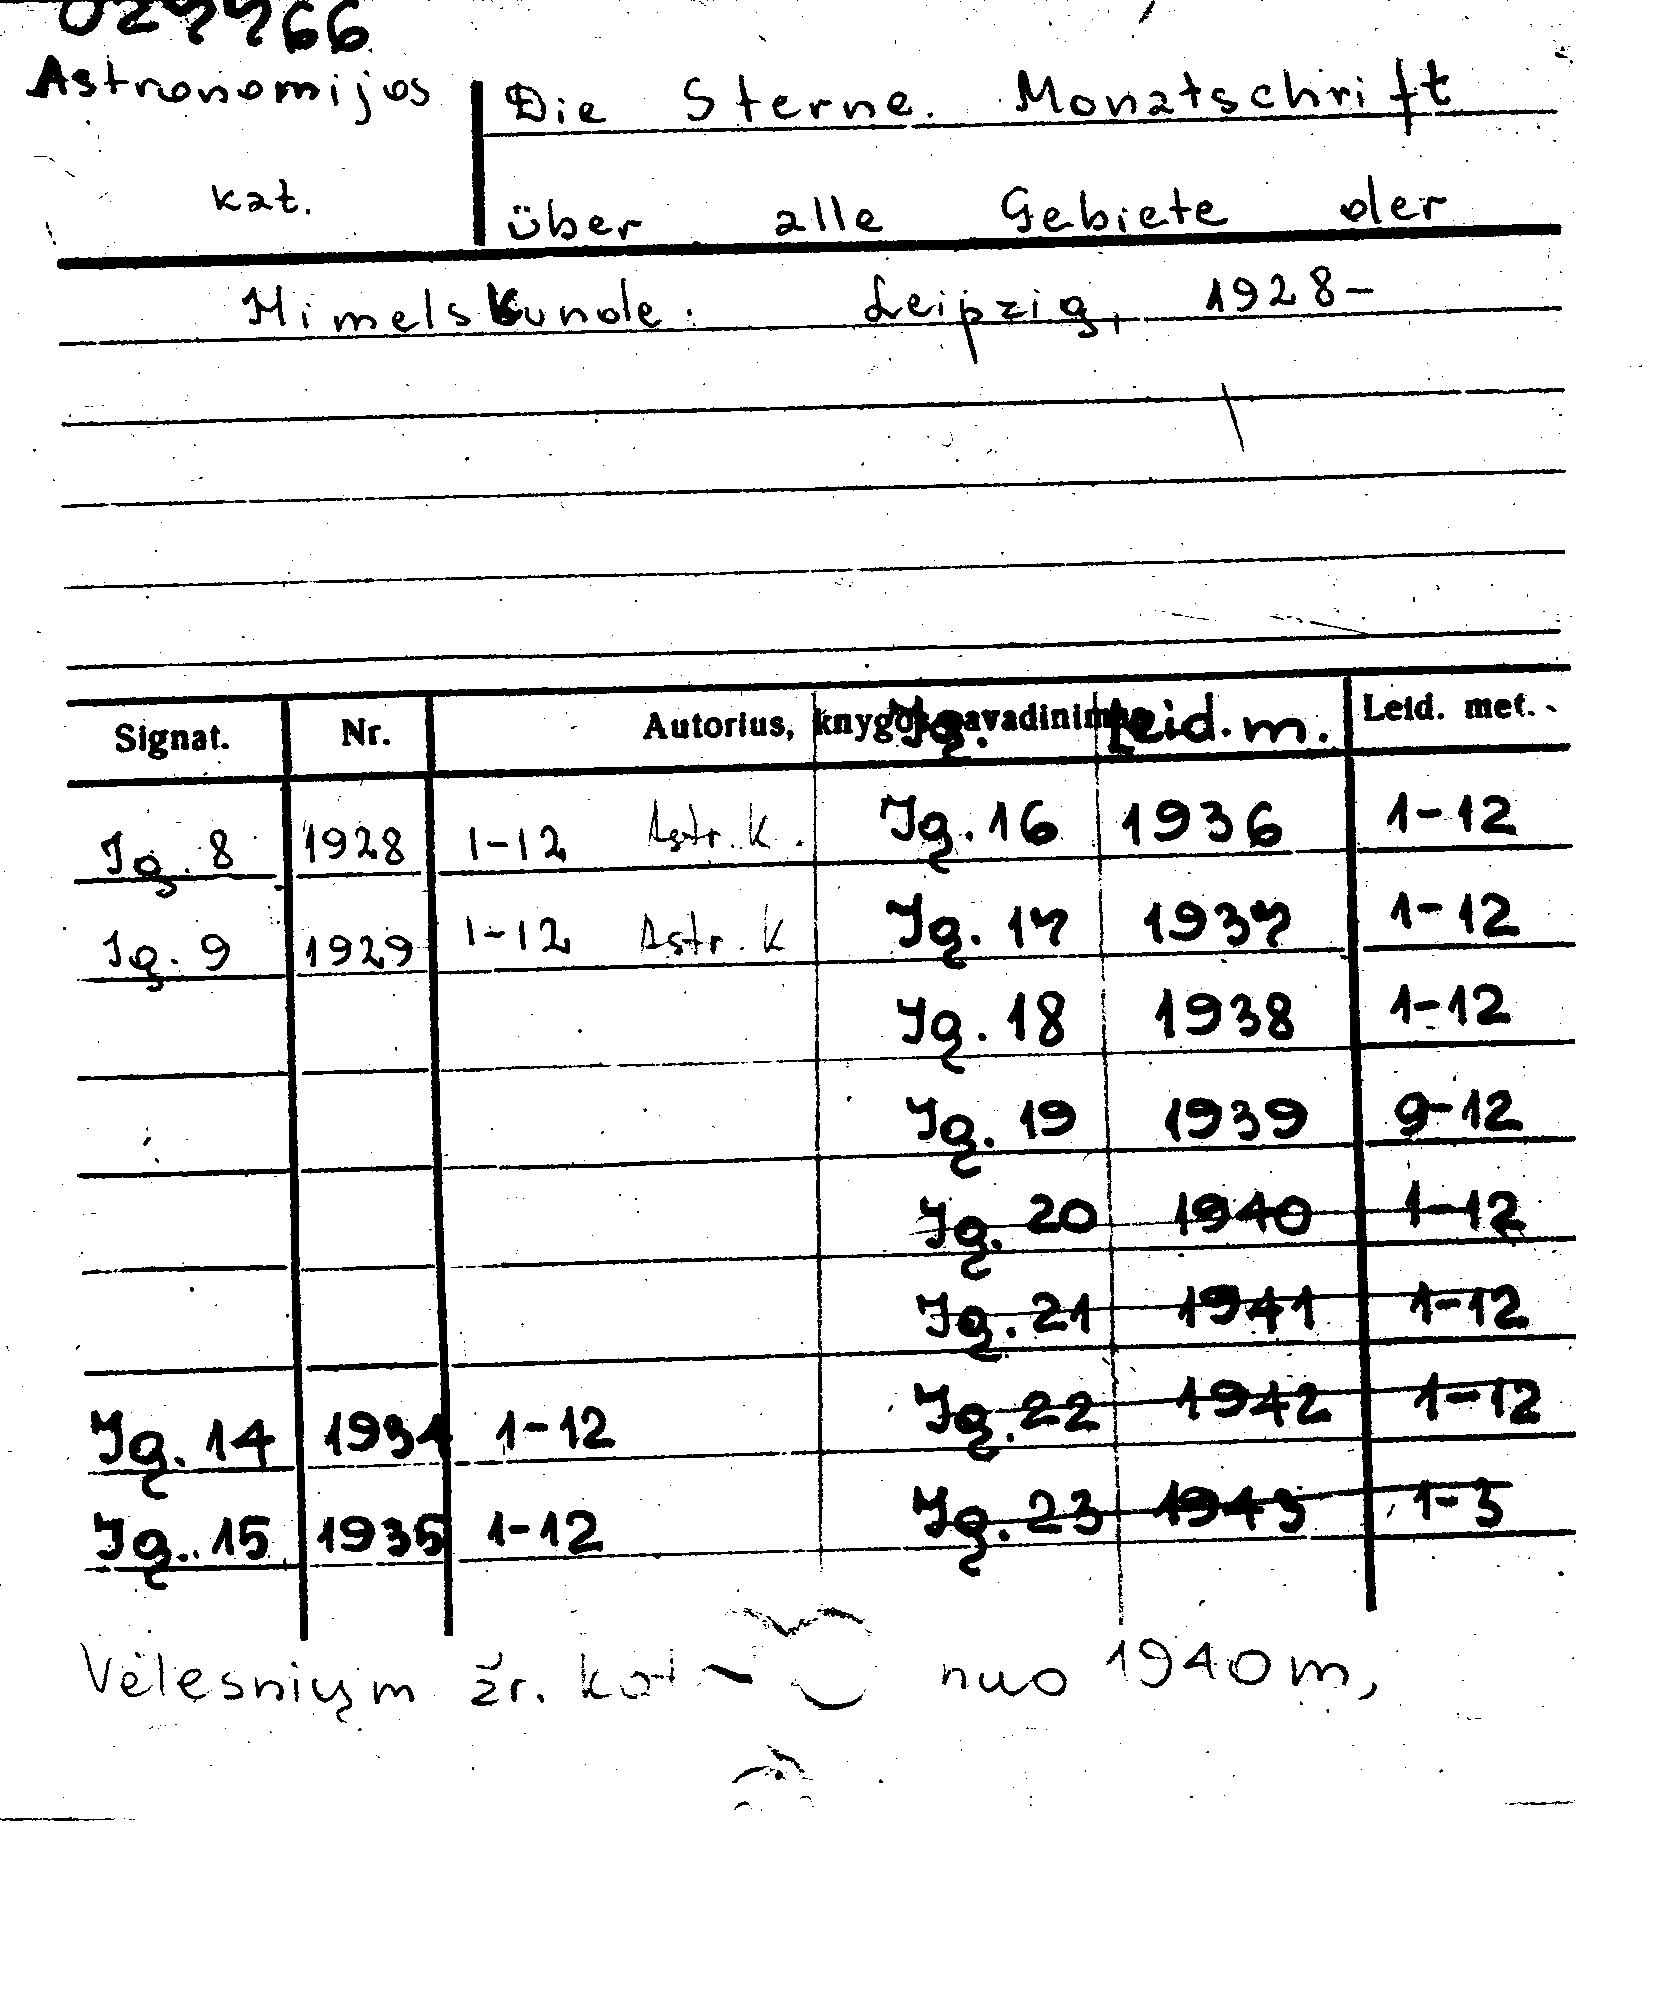 027766
Astronomijos Die Sterne. Monatschrift
kat. über alle Gebiete der
Himelskunde. Leipzig, 1928-
Signat. Nr. Autorius, knygos pavadinimas Jg. Leid. m. Leid. met.
Jg. 8 1928 1-12 Astr. k. Jg. 16 1936 1-12
Jg. 9 1929 1-12 Astr. k Jg. 17 1937 1-12
Jg. 18 1938 1-12
Jg. 19 1939 9-12
Jg. 20 1940 1-12
Jg. 21 1941 1-12
Jg. 14 1934 1-12 Jg. 22 1942 1-12
Jg. 15 1935 1-12 Jg. 23 1943 1-3
Vėlesnių m žr. kat nuo 1940 m,